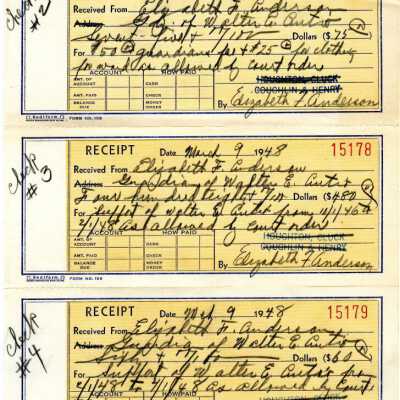 Check #2
Received From Elizabeth F. Anderson
Address Gdn. of Walter E. Autio
Seventy-five & no/100 Dollars $ 75
For $50 guardians fee & $25 for clothing
for ward as allowed by court order
ACCOUNT HOW PAID
AMT. OF ACCOUNT CASH
AMT. PAID CHECK
BALANCE DUE MONEY ORDER
HOUGHTON, CLUCK
COUGHLIN & HENRY
By Elizabeth F. Anderson
Rediform FORM NO. 108
Check #3
RECEIPT Date March 9 1948 15178
Received From Elizabeth F. Anderson
Address Guardian of Walter E. Autio
Four hundred eighty & no/100 Dollars $480
For Support of Walter E. Autio from 11/1/46 to
2/1/48 as allowed by court order
ACCOUNT HOW PAID
AMT. OF ACCOUNT CASH
AMT. PAID CHECK
BALANCE DUE MONEY ORDER
HOUGHTON, CLUCK
COUGHLIN & HENRY
By Elizabeth F. Anderson
Rediform FORM NO. 108
Check #4
RECEIPT Date Mch 9 1948 15179
Received From Elizabeth F. Anderson
Address Guardian of Walter E. Autio
Sixty & no/100 Dollars $60
For Support of Walter E. Autio from
2/1/48 to /1/48 as allowed by Court